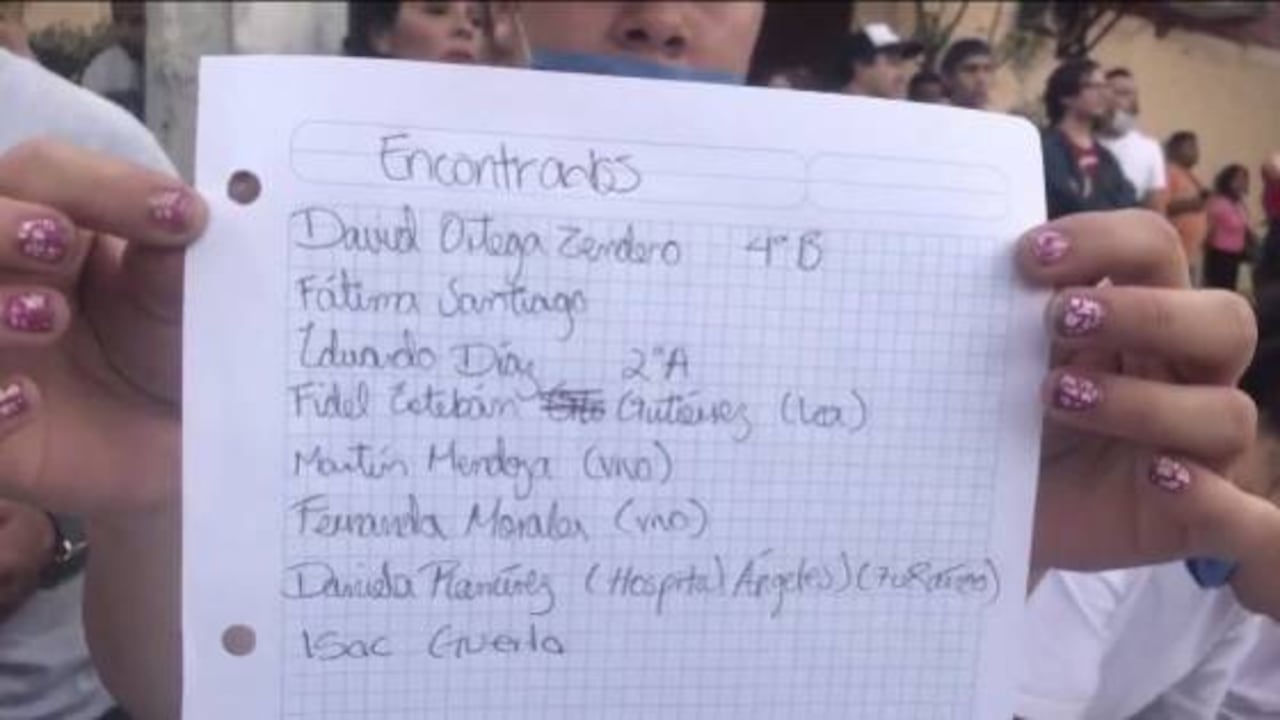 Encontrados
David Ortega Zendero 4° B
Fátima Santiago
Eduardo Díaz 2°A
Fidel Estebán Gutiérrez (Lea)
Martín Mendoza (vivo)
Fernanda Morales (vivo)
Daniela Ramírez (Hospital Ángeles) (7 u 8 años)
Isac Guerla